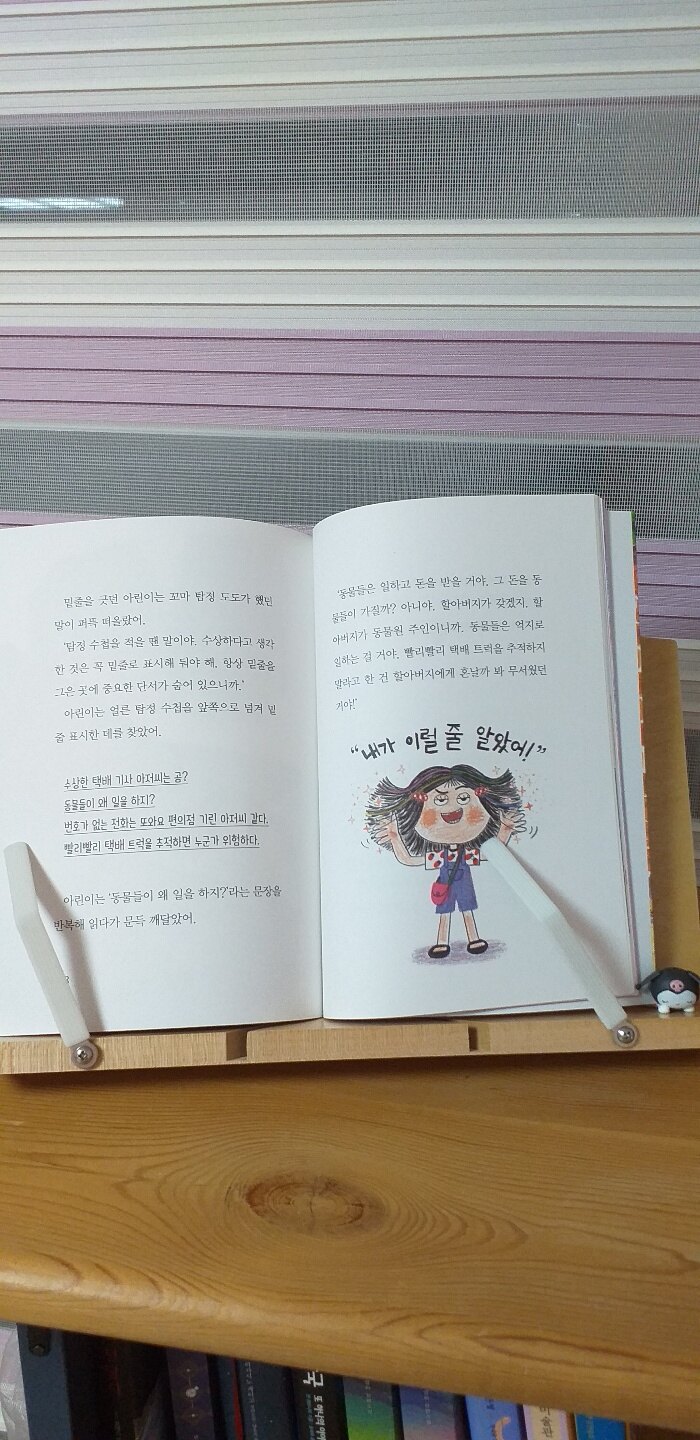 밑줄을 긋던 아린이는 꼬마 탐정 도도가 했던
말이 퍼뜩 떠올랐어.
'탐정 수첩을 적을 땐 말이야. 수상하다고 생각
한 것은 꼭 밑줄로 표시해 둬야 해. 항상 밑줄을
그은 곳에 중요한 단서가 숨어 있으니까.'
아린이는 얼른 탐정 수첩을 앞쪽으로 넘겨 밑
줄 표시한 데를 찾았어.
수상한 택배 기사 아저씨는 곰?
동물들이 왜 일을 하지?
번호가 없는 전화는 또와요 편의점 기린 아저씨 같다.
빨리빨리 택배 트럭을 추적하면 누군가 위험하다.
아린이는 '동물들이 왜 일을 하지?'라는 문장을
반복해 읽다가 문득 깨달았어.
'동물들은 일하고 돈을 받을 거야. 그 돈을 동
물들이 가질까? 아니야. 할아버지가 갖겠지. 할
아버지가 동물원 주인이니까. 동물들은 억지로
일하는 걸 거야. 빨리빨리 택배 트럭을 추적하지
말라고 한 건 할아버지에게 혼날까 봐 무서웠던
거야!'
"내가 이럴 줄 알았어!"
국
미술관